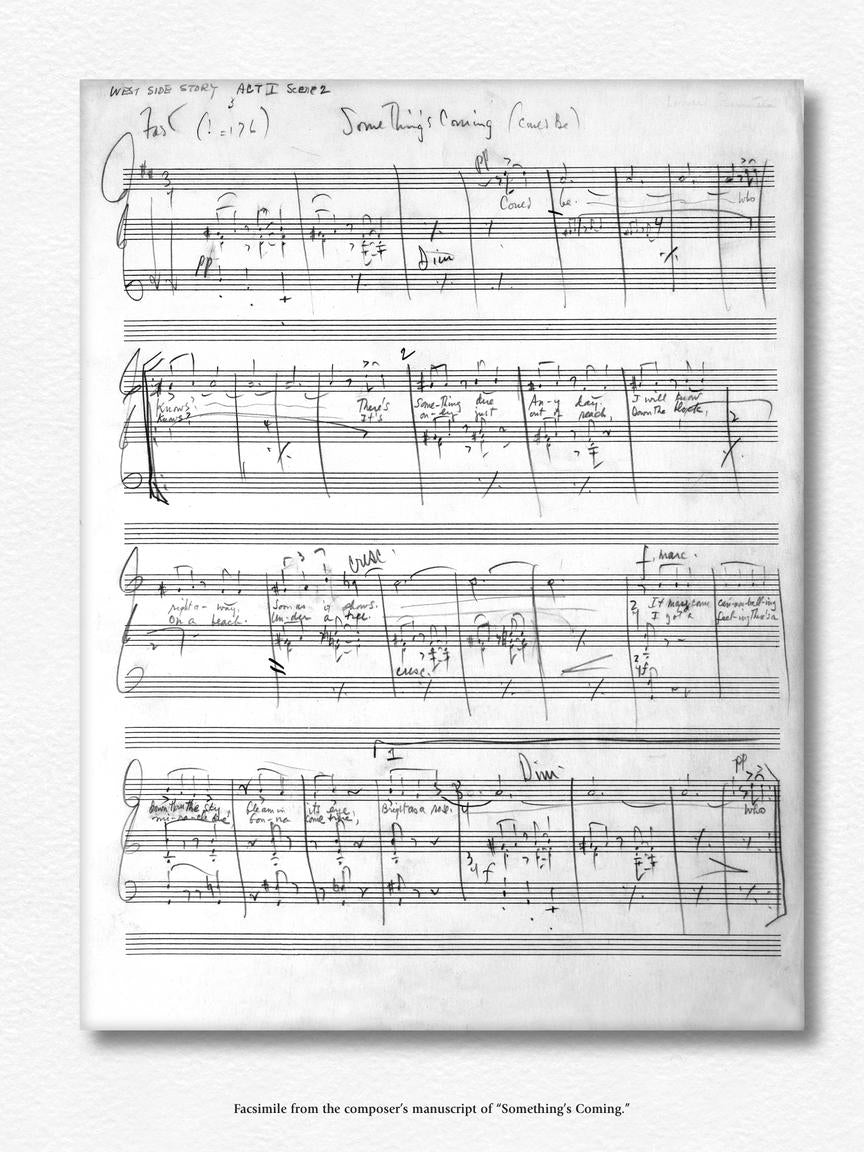 WEST SIDE STORY ACT I Scene 2
Fast ( =176) Something's Coming (Could Be)
pp
Could be. Who
pp Dim
2
Knows? There's Some-thing due An-y day. I will know
Knows? It's on-ly just out of reach, Down the block,
cresc. f marc.
right a-way. Soon as it shows. It may come can-non-ball-ing
On a beach. Un-der a tree. I got a feel-ing there's a
cresc. f
1 Dim pp
Down thru the sky, Gleam in its eye, Bright as a rose. Who
mi-racle due, Gon-na come true,
f
Facsimile from the composer's manuscript of “Something's Coming.”